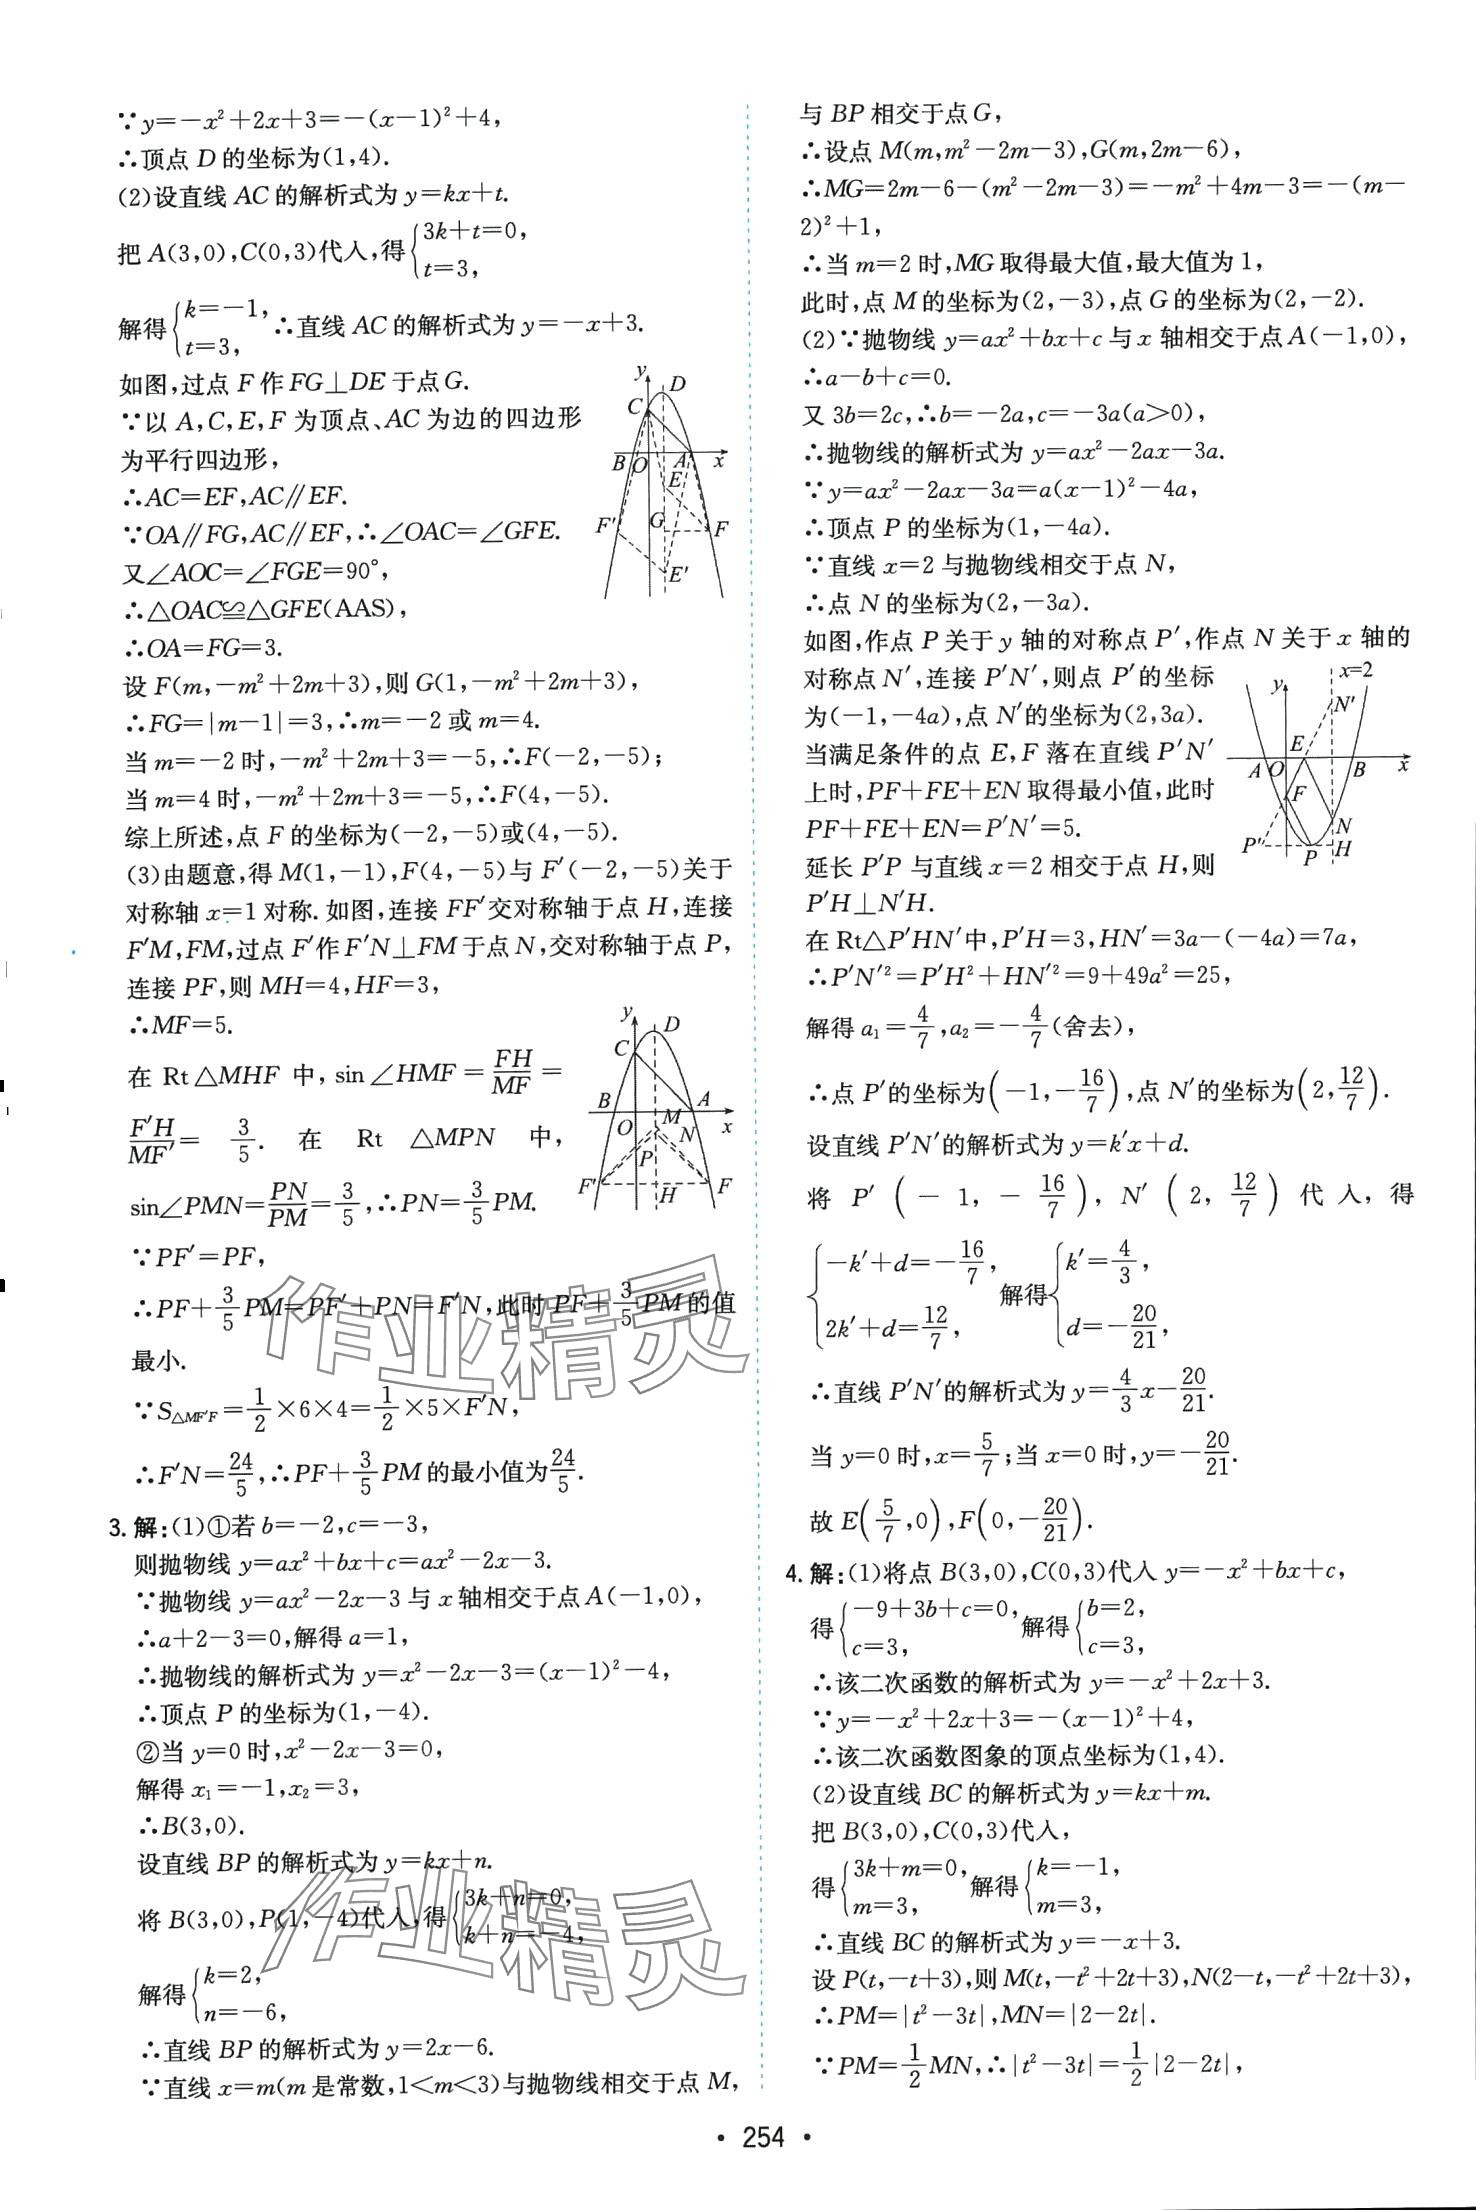 ∵y=-x²+2x+3=-(x-1)²+4,
∴顶点 D 的坐标为(1,4).
(2)设直线 AC 的解析式为 y=kx+t.
把 A(3,0),C(0,3)代入,得{3k+t=0,
t=3,
解得{k=-1,
t=3,
∴直线 AC 的解析式为 y=-x+3.
如图,过点 F 作 FG⊥DE 于点 G.
∵以 A,C,E,F 为顶点、AC 为边的四边形
为平行四边形,
∴AC=EF,AC∥EF.
∵OA∥FG,AC∥EF,∴∠OAC=∠GFE.
又∠AOC=∠FGE=90°,
∴△OAC≌△GFE(AAS),
∴OA=FG=3.
y
D
C
B
O
A
x
E
F'
G
F
E'
设 F(m,-m²+2m+3),则 G(1,-m²+2m+3),
∴FG=|m-1|=3,∴m=-2 或 m=4.
当 m=-2 时,-m²+2m+3=-5,∴F(-2,-5);
当 m=4 时,-m²+2m+3=-5,∴F(4,-5).
综上所述,点 F 的坐标为(-2,-5)或(4,-5).
(3)由题意,得 M(1,-1),F(4,-5)与 F'(-2,-5)关于
对称轴 x=1 对称.如图,连接 FF'交对称轴于点 H,连接
F'M,FM,过点 F'作 F'N⊥FM 于点 N,交对称轴于点 P,
连接 PF,则 MH=4,HF=3,
∴MF=5.
在 Rt△MHF 中,sin∠HMF=FH/MF=
F'H/MF'=3/5. 在 Rt △MPN 中,
sin∠PMN=PN/PM=3/5,∴PN=3/5PM.
y
D
C
B
A
O
M
x
N
P
F'
H
F
∵PF'=PF,
∴PF+3/5PM=PF'+PN=F'N,此时 PF+3/5PM 的值
最小.
∵S△MF'F=1/2×6×4=1/2×5×F'N,
∴F'N=24/5,∴PF+3/5PM 的最小值为24/5.
3. 解:(1)①若 b=-2,c=-3,
则抛物线 y=ax²+bx+c=ax²-2x-3.
∵抛物线 y=ax²-2x-3 与 x 轴相交于点 A(-1,0),
∴a+2-3=0,解得 a=1,
∴抛物线的解析式为 y=x²-2x-3=(x-1)²-4,
∴顶点 P 的坐标为(1,-4).
②当 y=0 时,x²-2x-3=0,
解得 x₁=-1,x₂=3,
∴B(3,0).
设直线 BP 的解析式为 y=kx+n.
将 B(3,0),P(1,-4)代入,得{3k+n=0,
k+n=-4,
解得{k=2,
n=-6,
∴直线 BP 的解析式为 y=2x-6.
∵直线 x=m(m 是常数,1<m<3)与抛物线相交于点 M,
与 BP 相交于点 G,
∴设点 M(m,m²-2m-3),G(m,2m-6),
∴MG=2m-6-(m²-2m-3)=-m²+4m-3=-(m-
2)²+1,
∴当 m=2 时,MG 取得最大值,最大值为 1,
此时,点 M 的坐标为(2,-3),点 G 的坐标为(2,-2).
(2)∵抛物线 y=ax²+bx+c 与 x 轴相交于点 A(-1,0),
∴a-b+c=0.
又 3b=2c,∴b=-2a,c=-3a(a>0),
∴抛物线的解析式为 y=ax²-2ax-3a.
∵y=ax²-2ax-3a=a(x-1)²-4a,
∴顶点 P 的坐标为(1,-4a).
∵直线 x=2 与抛物线相交于点 N,
∴点 N 的坐标为(2,-3a).
如图,作点 P 关于 y 轴的对称点 P',作点 N 关于 x 轴的
对称点 N',连接 P'N',则点 P'的坐标
为(-1,-4a),点 N'的坐标为(2,3a).
当满足条件的点 E,F 落在直线 P'N'
上时,PF+FE+EN 取得最小值,此时
PF+FE+EN=P'N'=5.
延长 P'P 与直线 x=2 相交于点 H,则
P'H⊥N'H.
x=2
y
N'
E
A
O
B
x
F
N
P'
P
H
在 Rt△P'HN'中,P'H=3,HN'=3a-(-4a)=7a,
∴P'N'²=P'H²+HN'²=9+49a²=25,
解得 a₁=4/7,a₂=-4/7(舍去),
∴点 P'的坐标为(-1,-16/7),点 N'的坐标为(2,12/7).
设直线 P'N'的解析式为 y=k'x+d.
将 P'(-1,-16/7),N'(2,12/7)代入,得
{-k'+d=-16/7,
2k'+d=12/7,
解得{k'=4/3,
d=-20/21,
∴直线 P'N'的解析式为 y=4/3x-20/21.
当 y=0 时,x=5/7;当 x=0 时,y=-20/21.
故 E(5/7,0),F(0,-20/21).
4. 解:(1)将点 B(3,0),C(0,3)代入 y=-x²+bx+c,
得{-9+3b+c=0,
c=3,
解得{b=2,
c=3,
∴该二次函数的解析式为 y=-x²+2x+3.
∵y=-x²+2x+3=-(x-1)²+4,
∴该二次函数图象的顶点坐标为(1,4).
(2)设直线 BC 的解析式为 y=kx+m.
把 B(3,0),C(0,3)代入,
得{3k+m=0,
m=3,
解得{k=-1,
m=3,
∴直线 BC 的解析式为 y=-x+3.
设 P(t,-t+3),则 M(t,-t²+2t+3),N(2-t,-t²+2t+3),
∴PM=|t²-3t|,MN=|2-2t|.
∵PM=1/2MN,∴|t²-3t|=1/2|2-2t|,
作业精灵
作业精灵
· 254 ·